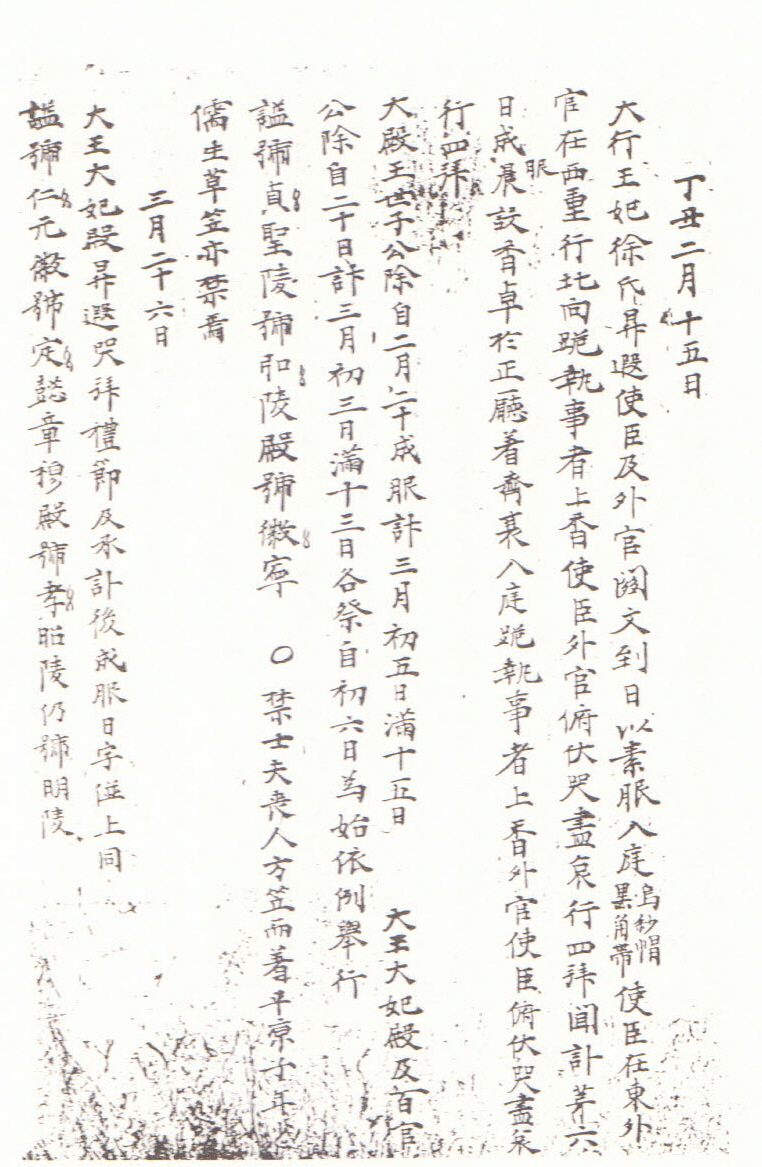 丁丑二月十五日
大行王妃徐氏昇遐使臣及外官關文到日以素服入庭烏紗帽黑角帶使臣在東外
官在西重行北向跪執事者上香使臣外官俯伏哭盡哀行四拜聞訃茅六
日成服晨設香卓於正廳着齊衰入庭跪執事者上香外官使臣俯伏哭盡哀
行四拜
大殿王世子公除自二月二十成服計三月初五日滿十五日 大王大妃殿及百官
公除自二十日計三月初三日滿十三日各祭自初六日為始依例舉行
謚號貞聖陵號弘陵殿號徽寧 ○ 禁士夫喪人方笠而着平凉子年少
儒生草笠亦禁着
三月二十六日
大王大妃殿昇遐哭拜禮節及承訃後成服日字並上同
謚號仁元徽號定懿章穆殿號孝昭陵仍號明陵